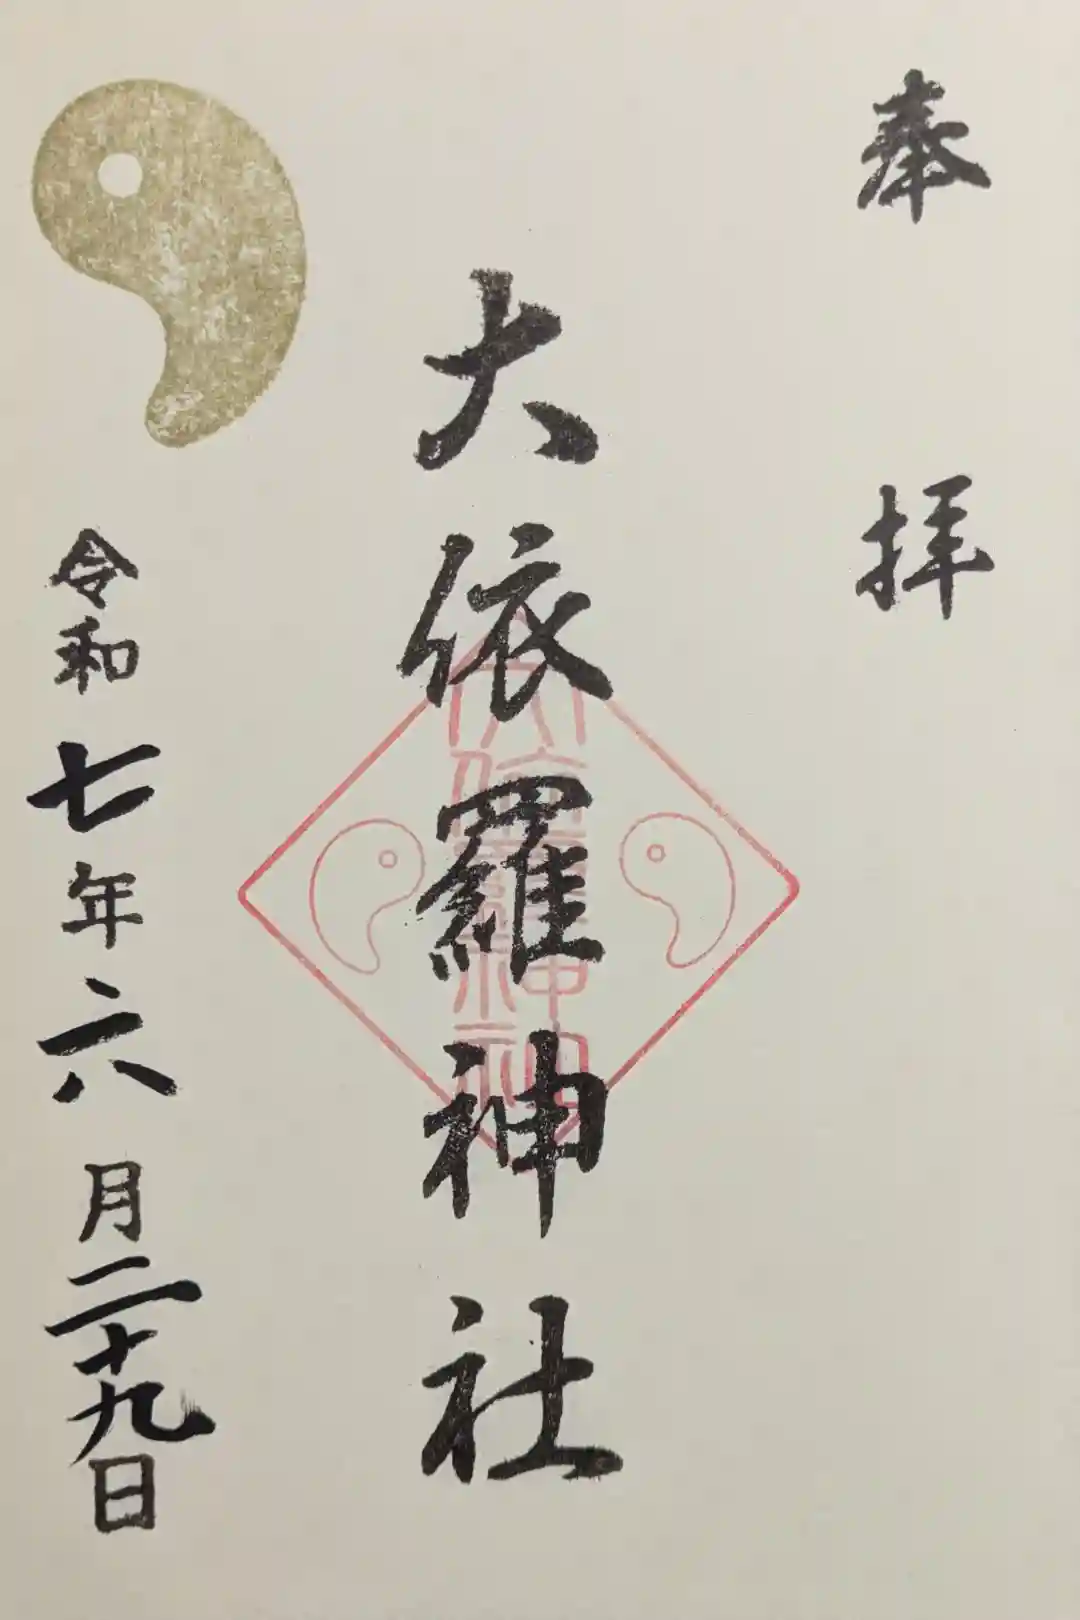 奉拝
大依羅神社
令和七年六月二十九日
大依羅神社